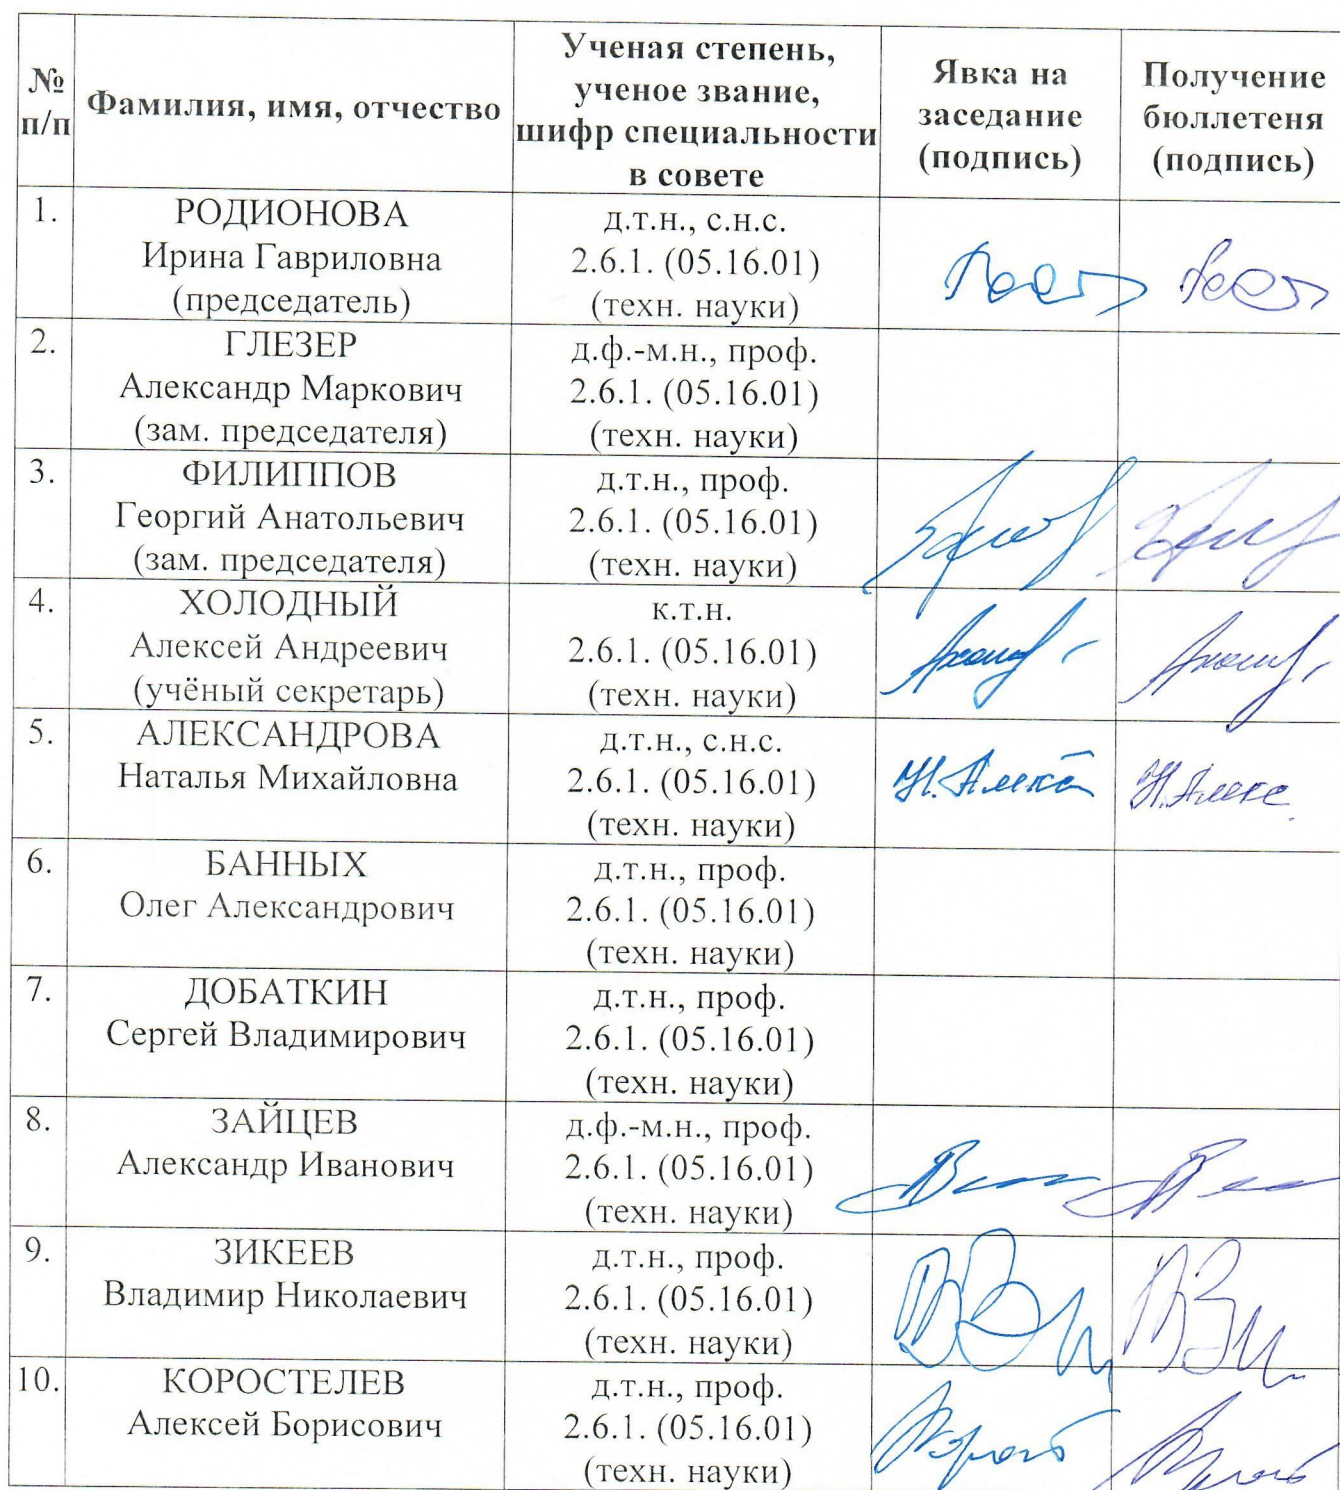 № п/п
Фамилия, имя, отчество
Ученая степень,
ученое звание,
шифр специальности
в совете
Явка на
заседание
(подпись)
Получение
бюллетеня
(подпись)
1.
РОДИОНОВА
Ирина Гавриловна
(председатель)
д.т.н., с.н.с.
2.6.1. (05.16.01)
(техн. науки)
2.
ГЛЕЗЕР
Александр Маркович
(зам. председателя)
д.ф.-м.н., проф.
2.6.1. (05.16.01)
(техн. науки)
3.
ФИЛИППОВ
Георгий Анатольевич
(зам. председателя)
д.т.н., проф.
2.6.1. (05.16.01)
(техн. науки)
4.
ХОЛОДНЫЙ
Алексей Андреевич
(учёный секретарь)
к.т.н.
2.6.1. (05.16.01)
(техн. науки)
5.
АЛЕКСАНДРОВА
Наталья Михайловна
д.т.н., с.н.с.
2.6.1. (05.16.01)
(техн. науки)
6.
БАННЫХ
Олег Александрович
д.т.н., проф.
2.6.1. (05.16.01)
(техн. науки)
7.
ДОБАТКИН
Сергей Владимирович
д.т.н., проф.
2.6.1. (05.16.01)
(техн. науки)
8.
ЗАЙЦЕВ
Александр Иванович
д.ф.-м.н., проф.
2.6.1. (05.16.01)
(техн. науки)
9.
ЗИКЕЕВ
Владимир Николаевич
д.т.н., проф.
2.6.1. (05.16.01)
(техн. науки)
10.
КОРОСТЕЛЕВ
Алексей Борисович
д.т.н., проф.
2.6.1. (05.16.01)
(техн. науки)